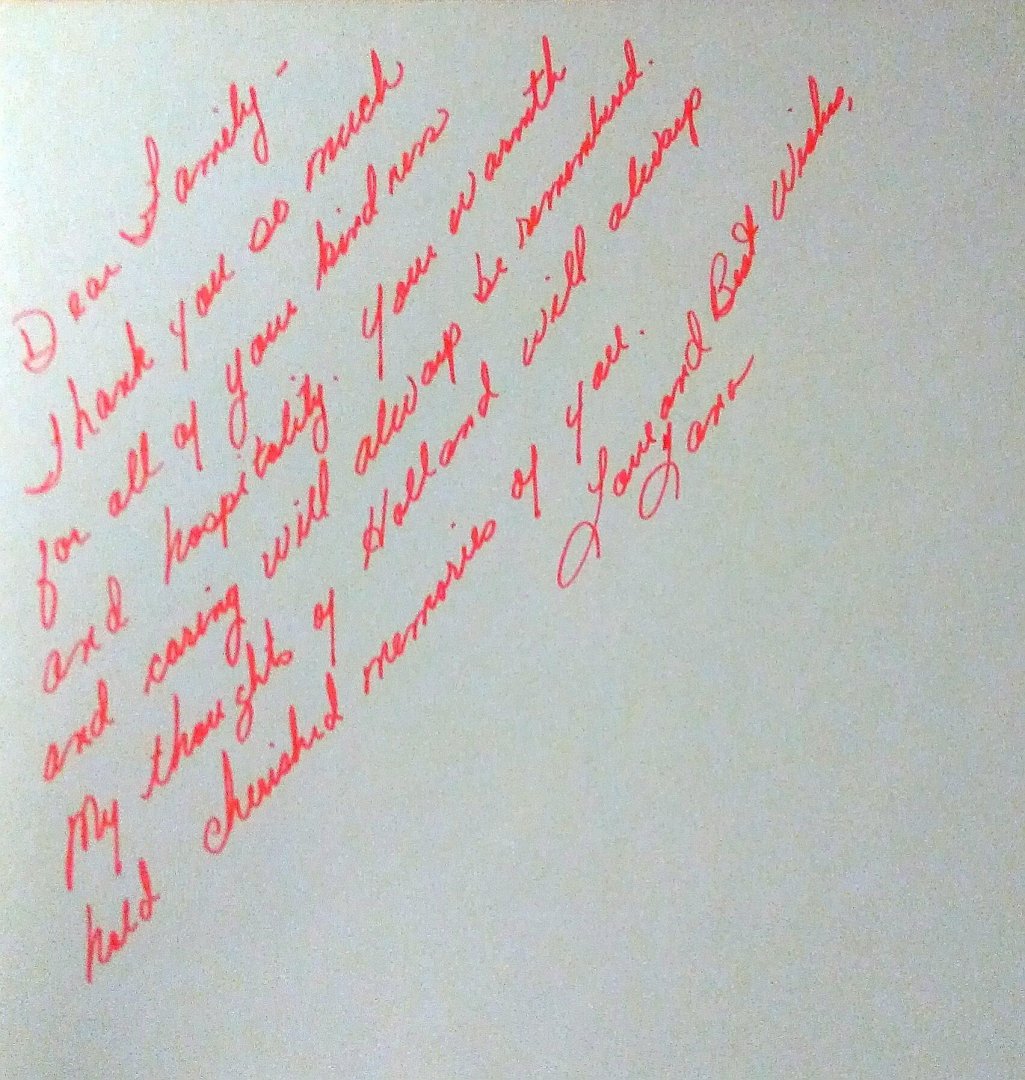 Dear Family-
Thank you so much
for all of your kindness
and hospitality. Your warmth
and caring will always be remembered.
My thoughts of Holland will always
hold cherished memories of you.
Love and Best Wishes,
Lana